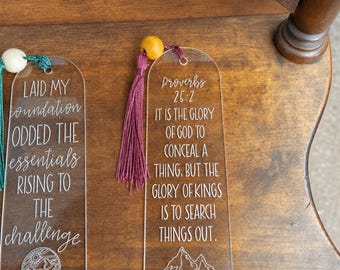 LAID MY
foundation
ODDED THE
essentials
RISING TO
THE
challenge
Proverbs
25:2
IT IS THE GLORY
OF GOD TO
CONCEAL A
THING, BUT THE
GLORY OF KINGS
IS TO SEARCH
THINGS OUT.